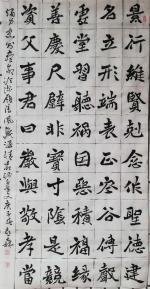 景行維賢克念作聖德建
名立形端表正空谷傳聲
虛堂習聽禍因惡積福緣
善慶尺璧非寶寸陰是競
資父事君曰嚴與敬孝當